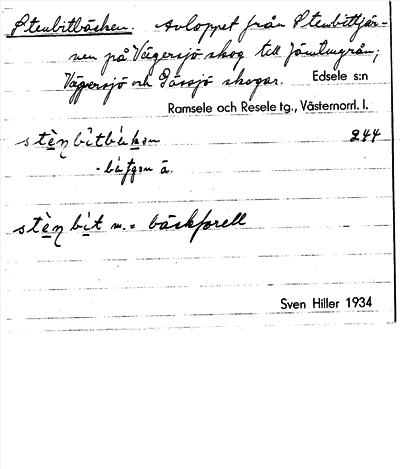 Stenbitbäcken. Avloppet från Stenbittjär-
nen på Vägersjö skog till Jämtmgrän;
Vägersjö och Gåssjö skogar. Edsele s:n
Ramsele och Resele tg., Västernorrl. l.
stèn bìtbäkən 244
- bä ä.
stèn bìt m. = bäckforell
Sven Hiller 1934